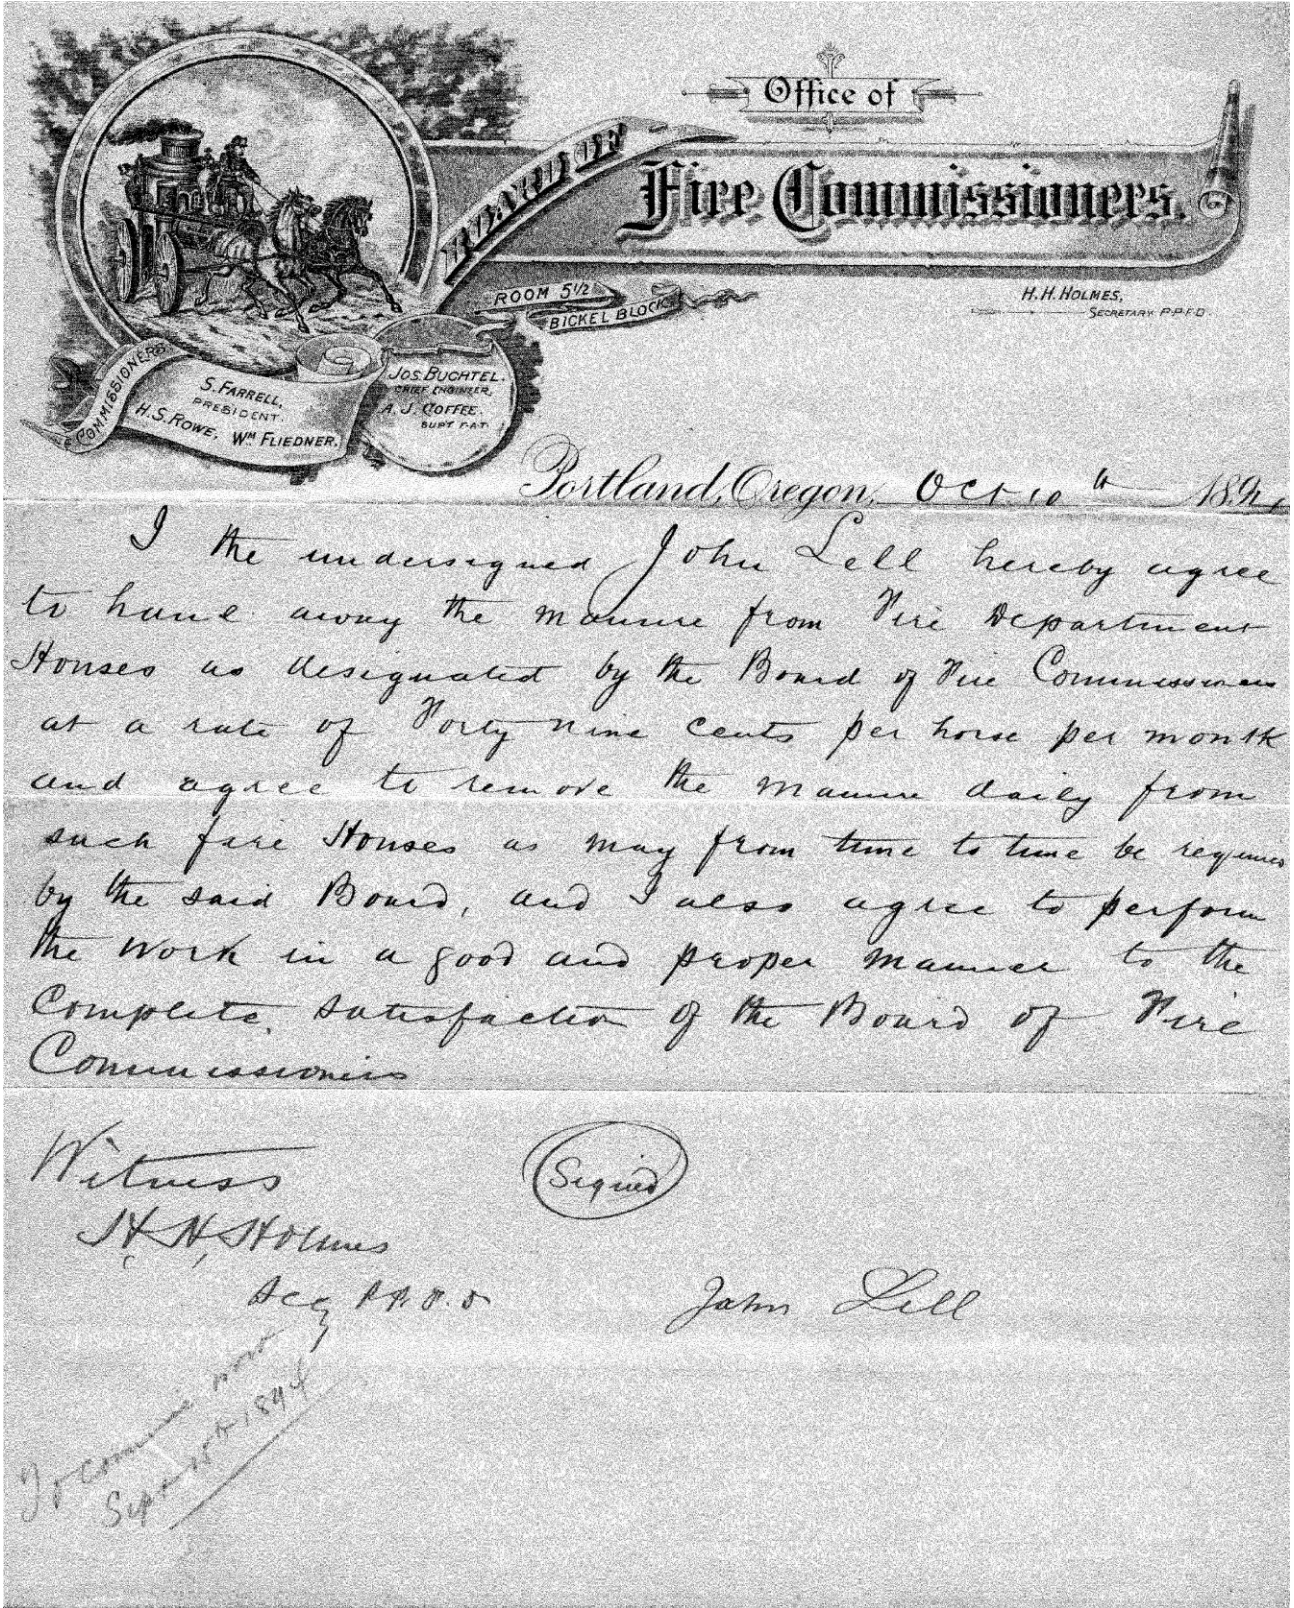 Office of
BOARD OF
Fire Commissioners.
ROOM 5 1/2
BICKEL BLOCK
H. H. HOLMES,
SECRETARY P.P.F.D.
COMMISSIONERS
S. FARRELL,
PRESIDENT.
H. S. ROWE, WM FLIEDNER.
JOS. BUCHTEL.
CHIEF ENGINEER,
A. J. COFFEE.
SUPT F.A.T.
Portland, Oregon, Oct 10th 189
I the undersigned John Lell hereby agree
to haul away the manure from Fire Department
Houses as designated by the Board of Fire Commissioners
at a rate of Forty nine cents per horse per month
and agree to remove the manure daily from
such fire Houses as may from time to time be required
by the said Board, and I also agree to perform
the work in a good and proper manner to the
Complete satisfaction of the Board of Fire
Commissioners
Witness
H. H. Holmes
Secy P.P.F.D
(Signed)
John Lell
To commence
Sept 15th 1894